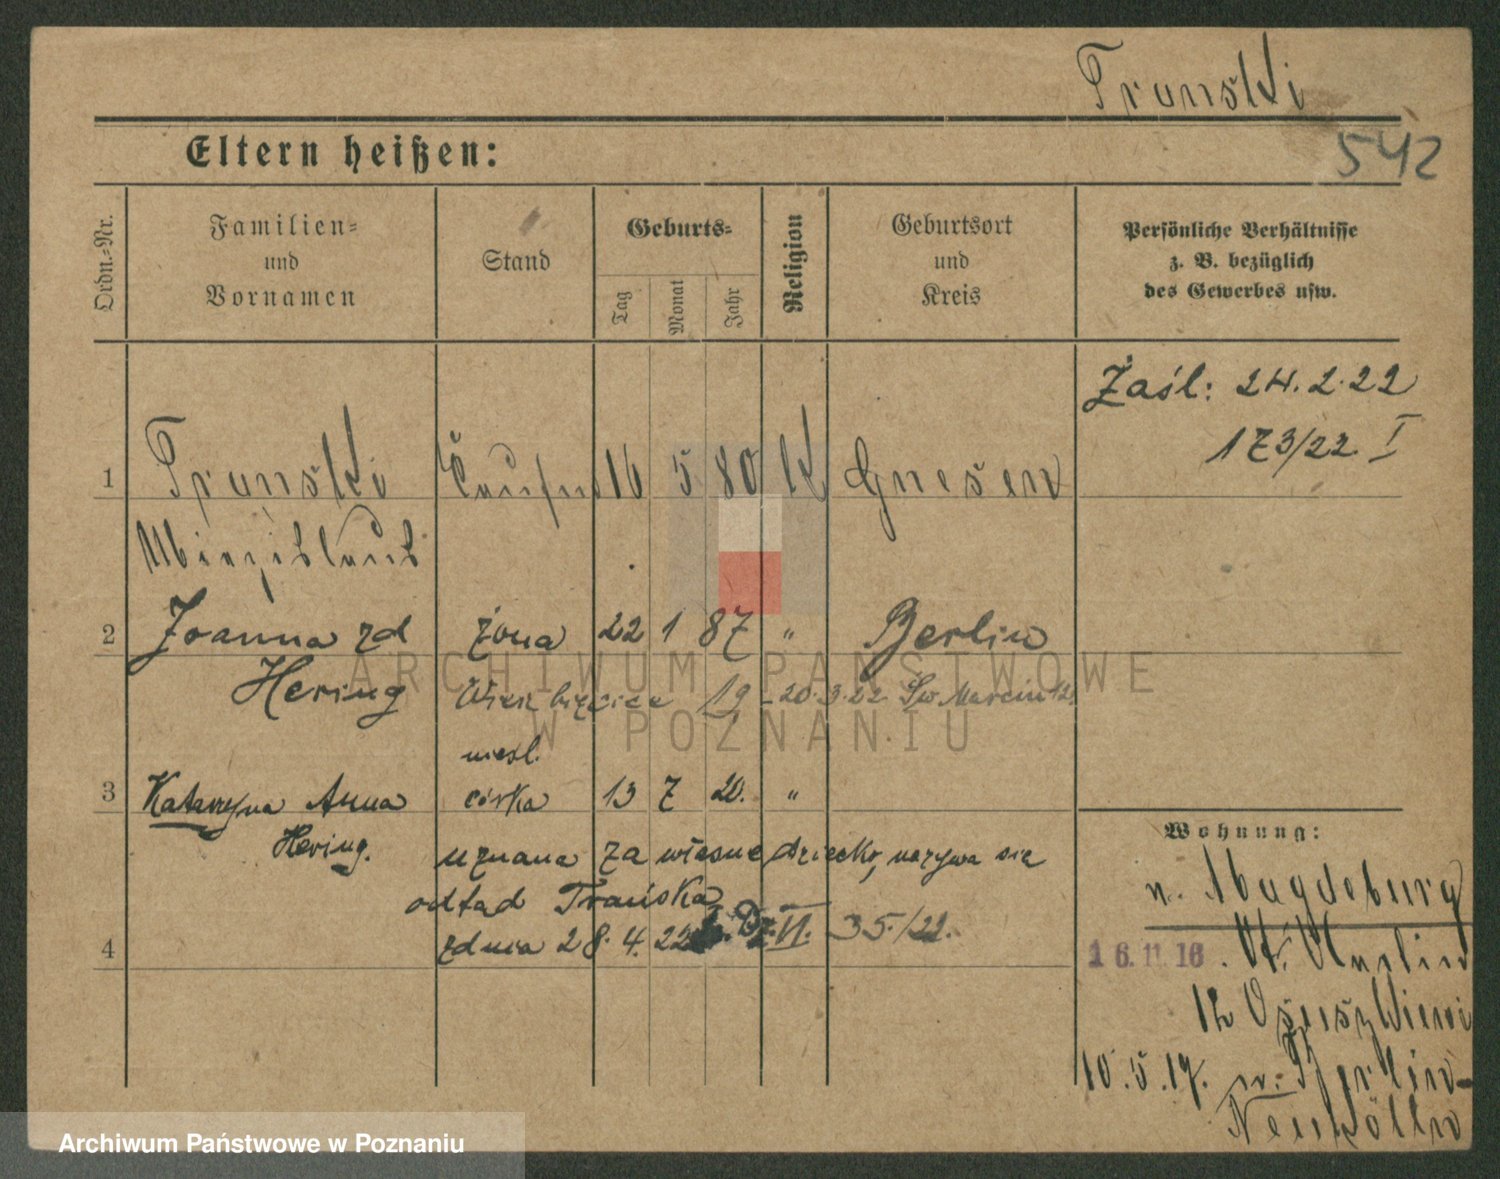 Tronski
542
Eltern heißen:
Ordn.-Nr.
Familien-
und
Vornamen
Stand
Geburts-
Tag
Monat
Jahr
Religion
Geburtsort
und
Kreis
Persönliche Verhältnisse
z. B. bezüglich
des Gewerbes usw.
Zaśl: 24.2.22
173/22. I
1 Tronski 16 5 80 K Gnesen
Miezislaus
2 Joanna zd żona 22 1 87 " Berlin
Hering
19 - 20.3.22 Św. Marcin
nieśl.
3 Katarzyna Anna córka 13 7 20. "
Hering.
uznana za własne dziecko, nazywa się
odtąd Trońska
4 zdnia 28.4.22 VI. 35./22.
Wohnung:
n. Magdeburg
16.11.16. v. Berlin
12
10.5.17. n. Berlin-
Neukölln
ARCHIWUM PAŃSTWOWE
W POZNANIU
Archiwum Państwowe w Poznaniu